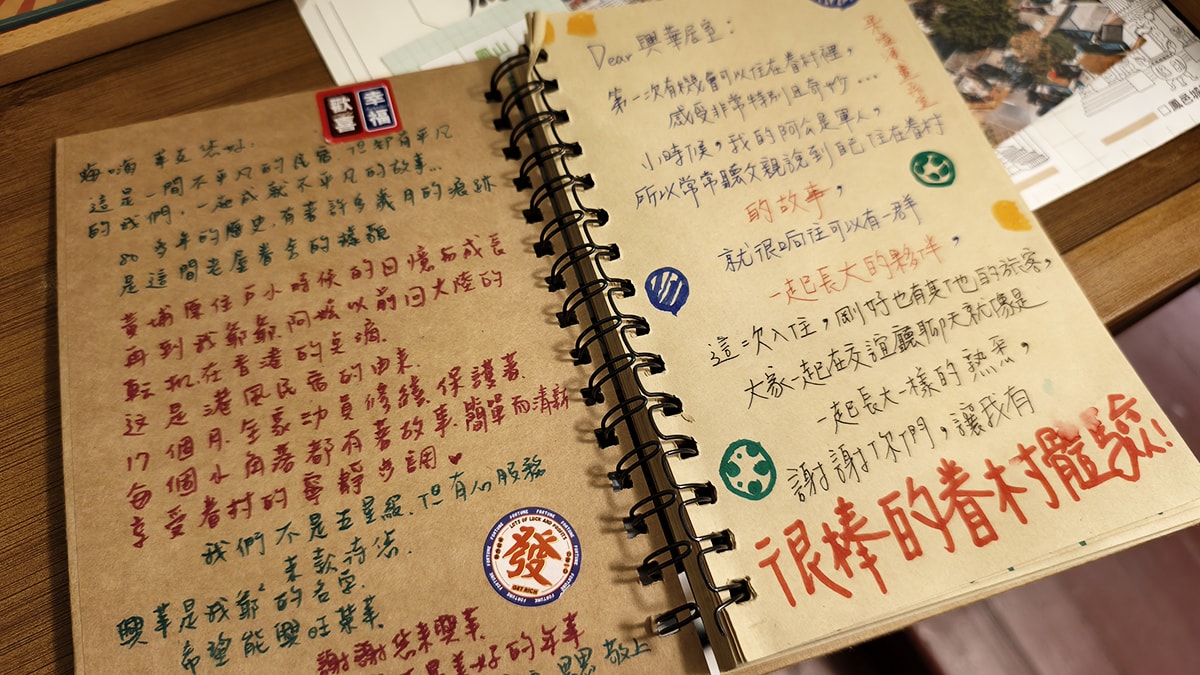 歡喜
幸福
嗨嗨 華友您好.
這是一間不平凡的民宿,但却有平凡
的我們,一起成就不平凡的故事...
80 多年的歷史,有著許多歲月的痕跡
是這間老屋眷舍的樣貌
黃埔原住戶小時候的回憶與成長
再到我爺爺.阿嬤以前回大陸的
転机在香港的点滴.
这是港風民宿的由來.
17個月.全家动員修繕.保護著.
每個小角落都有著故事.簡單而清新
享受眷村的寧靜步調♥
我們不是五星級.但有心服務
來款待您.
興華是我爺爺的名字.
希望能興旺華美
謝謝您來興華
是美好的年華
敬上
FORTUNE
LOTS OF LUCK AND PROFITS
發
GET RICH
Dear 興華居室:
第一次有機會可以住在眷村裡,
感受非常特別且奇妙...
小時候,我的阿公是軍人,
所以常常聽父親說到自己住在眷村
的故事,
就很嚮往可以有一群
一起長大的夥伴,
這一次入住,剛好也有其他的旅客,
大家一起在交誼廳聊天就像是
一起長大一樣的熟悉,
謝謝你們,讓我有
很棒的眷村體驗!
鳳山
鳳邑城